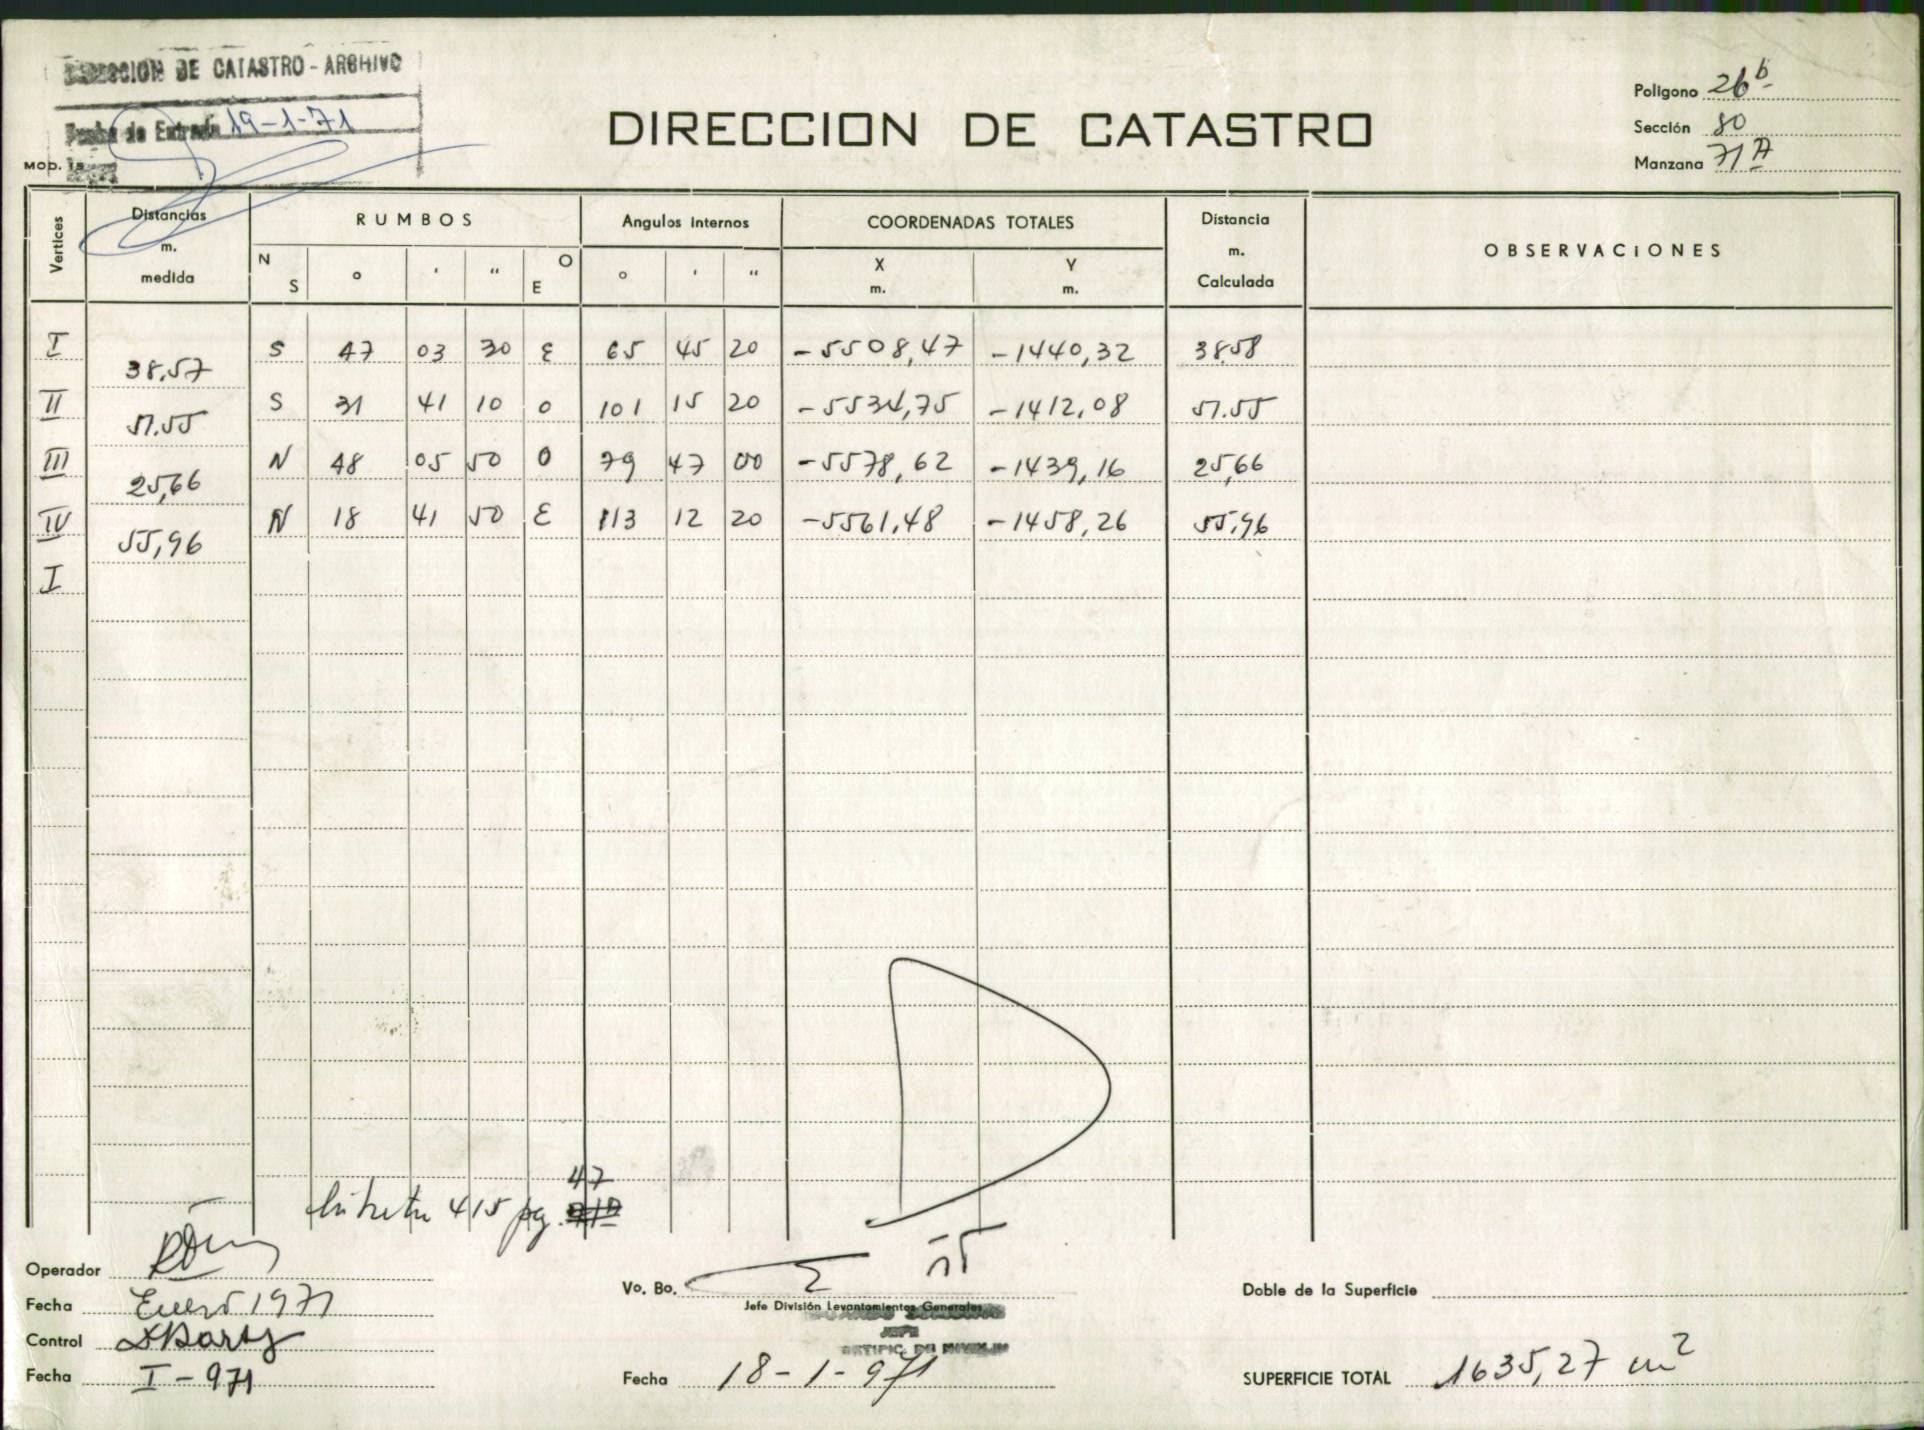 DIRECCION DE CATASTRO - ARCHIVO
Fecha de Entrada 19-1-71
MOD.
DIRECCION DE CATASTRO
Poligono 26b
Sección 80
Manzana 71A
Vertices Distancias m. medida RUMBOS Angulos Internos COORDENADAS TOTALES Distancia m. Calculada OBSERVACIONES
N S ° ' " O E ° ' " X m. Y m.
I S 47 03 30 E 65 45 20 -5508,47 -1440,32 38,58
38,57
II S 31 41 10 O 101 15 20 -5534,75 -1412,08 51.55
51.55
III N 48 05 50 O 79 47 00 -5578,62 -1439,16 25,66
25,66
IV N 18 41 50 E 113 12 20 -5561,48 -1458,26 55,96
55,96
I
47
415 pg.
Operador
Fecha Enero 1971
Control
Fecha I-971
Vo. Bo.
Jefe División Levantamientos Generales
JEFE
Fecha 18-1-971
Doble de la Superficie
SUPERFICIE TOTAL 1635,27 m2